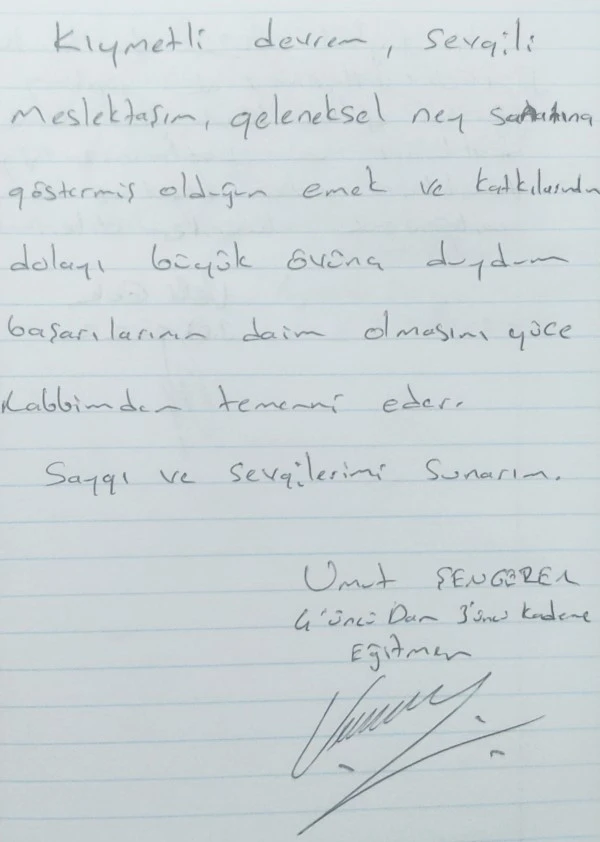 Kıymetli devrem, sevgili
meslektaşım, geleneksel ney sanatına
göstermiş olduğun emek ve katkılarından
dolayı büyük övünç duydum
başarılarının daim olmasını yüce
Rabbimden temenni eder.
Saygı ve sevgilerimi sunarım.
Umut
4'üncü Dan 3'üncü Kademe
Eğitmen